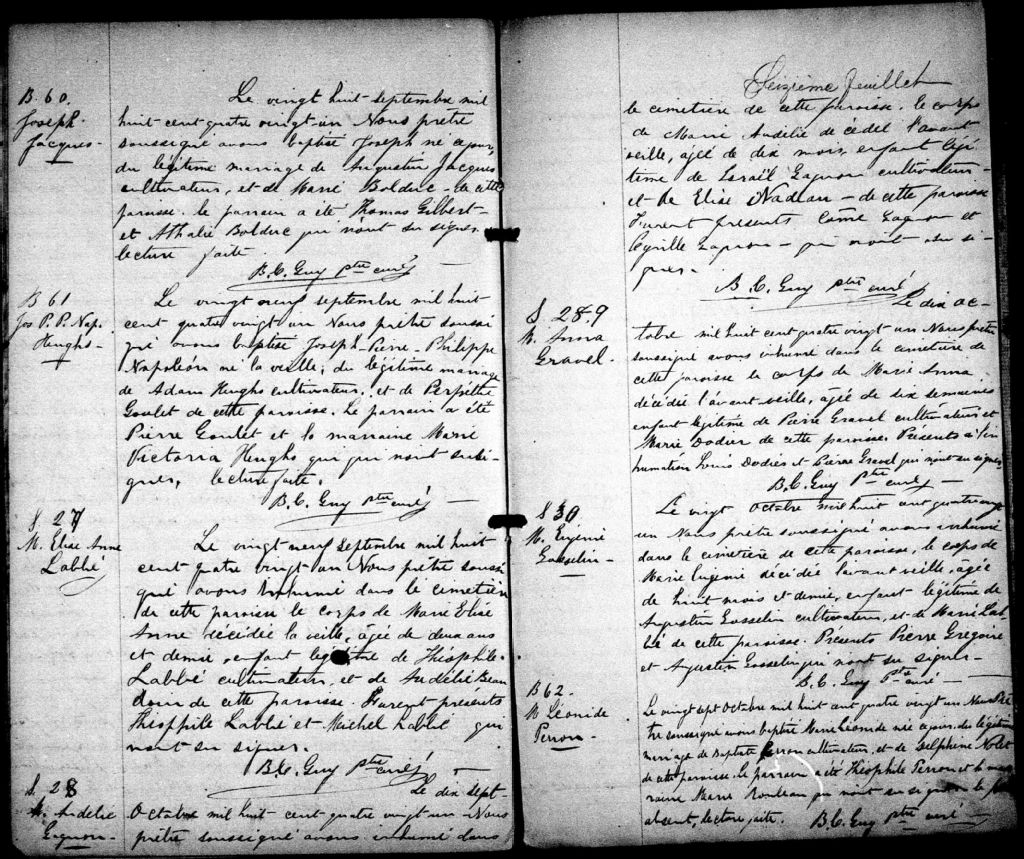 B. 60.
Joseph
Jacques -
Le vingt huit septembre mil
huit cent quatre vingt-un Nous prêtre
soussigné avons baptisé Joseph né ce jour,
du légitime mariage de Augustin Jacques
cultivateur, et de Marie Bolduc - de cette
paroisse. le parrain a été Thomas Gilbert -
et Athalie Bolduc qui n'ont su signer.
lecture faite.
B. C. Guy Ptre curé
B 61
Jos P. P. Nap.
Hughs -
Le vingt neuf septembre mil huit
cent quatre vingt un Nous prêtre soussi
gné avons baptisé Joseph - Pierre - Philippe
Napoléon né la veille, du légitime mariage
de Adam Hughs cultivateur, et de Perpétue
Goulet de cette paroisse. Le parrain a été
Pierre Goulet et la marraine Marie
Victoria Hughs qui qui n'ont su si-
gner, lecture faite.
B. C. Guy Ptre curé -
S. 27
M. Elise Anne
Labbé
Le vingt neuf septembre mil huit
cent quatre vingt un Nous prêtre soussi
gné avons inhumé dans le cimetière
de cette paroisse le corps de Marie Elise
Anne décédée la veille, âgée de deux ans
et demie, enfant légitime de Théophile
Labbé cultivateur, et de Audélie Beau
doin de cette paroisse. Furent présents
Théophile Labbé et Michel Labbé qui
n'ont su signer.
B. C. Guy Ptre curé -
S. 28
M. Audélie
Gagnon -
Le dix sept
Octobre mil huit cent quatre vingt un - Nous
prêtre soussigné avons inhumé dans
Seizième feuillet
le cimetière de cette paroisse. le corps
de Marie Audélie décédée l'avant
veille, âgée de dix mois, enfant légi
time de Israël Gagnon cultivateur -
et de Elise Nadeau - de cette paroisse
Furent présents Côme Gagnon et
Cyrille Gagnon - qui n'ont su si -
gner.
B. C. Guy ptre curé
S. 28.9
M. Anna
Gravel.
Le dix oc-
tobre mil huit cent quatre vingt un Nous prêtre
soussigné avons inhumé dans le cimetière de
cette paroisse le corps de Marie Anna
décédée l'avant-veille, âgée de six semaines
enfant légitime de Pierre Gravel cultivateur et
Marie Dodier de cette paroisse. Présents à l'in
humation Louis Dodier et Pierre Gravel qui n'ont su signer
B. C. Guy Ptre curé -
S 30
M. Eugénie
Gosselin -
Le vingt Octobre mil huit cent quatre vingt
un Nous prêtre soussigné avons inhumé
dans le cimetière de cette paroisse, le corps de
Marie Eugénie décédée l'avant veille, âgée
de huit mois et demie, enfant légitime de
Augustin Gosselin cultivateur, et de Marie Lab
bé de cette paroisse. Présents Pierre Grégoire
et Augustin Gosselin qui n'ont su signer -
B. C. Guy Ptre curé -
B 62.
M Léonide
Perron -
Le vingt sept Octobre mil huit cent quatre vingt un Nous Prê
tre soussigné avons baptisé Marie Léonide née ce jour, du légitime
mariage de Baptiste Perron cultivateur, et de Delphine Nolet
de cette paroisse. Le parrain a été Théophile Perron et la mar
raine Marie Rouleau qui n'ont su signer le père
absent, lecture faite. B. C. Guy ptre curé -